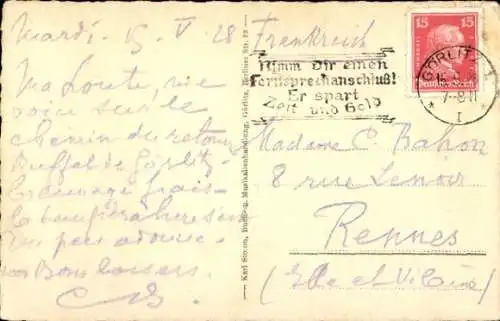 Mardi. 15 V 28
Ma Loute, me
voici sur le
chemin du retour
Buffet de Görlitz
frais
La température s'est
un peu
Bons baisers.
Karl Stoxon, Buchhdlg., Musikalienhandlung, Görlitz, Berliner Str. 22
Frankreich
Nimm Dir einen
Fernsprechanschluß!
Er spart
Zeit und Geld
GÖRLITZ 1
7-8 N
* I *
15 15
Deutsches Reich
Madame C. Bahon
8 rue Lenoir
Rennes
(Ille et Vilaine)